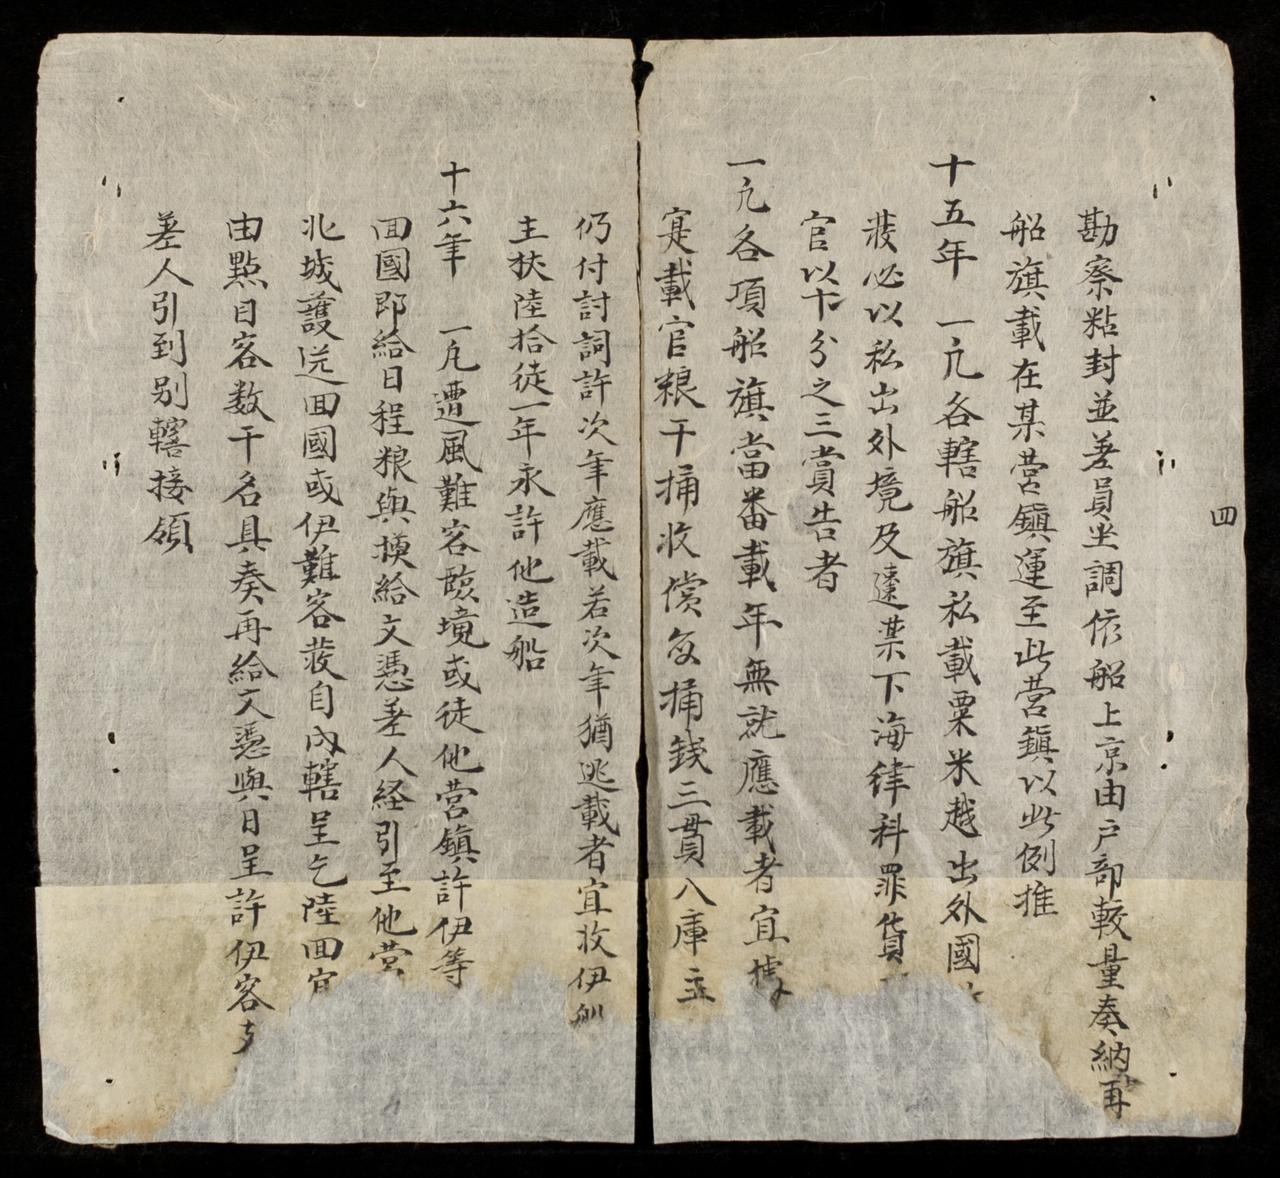 四
勘察粘封並差員坐調依船上京由户部較量奏納再
船旗載在某营鎮運至此营鎮以此例推
十五年 一凢各轄船旗私載粟米越出外國
裝必以私出外境及違禁下海律科罪貨
官以十分之三賞告者
一凢各項船旗當番載年無就應載者宜據
寔載官粮干桶收償每桶錢三貫入庫立
仍付討詞許次年應載若次年猶逃載者宜收伊船
主杖陸拾徒一年永許他造船
十六年 一凢遭風難客臨境或徒他营鎮許伊等
囬國即給日程粮與摸給文憑差人経引至他营
北城護送囬國或伊難客裝自内轄呈乞陸囬宜
由點目客数干名具奏再給文憑與日呈許伊客
差人引到别轄接領